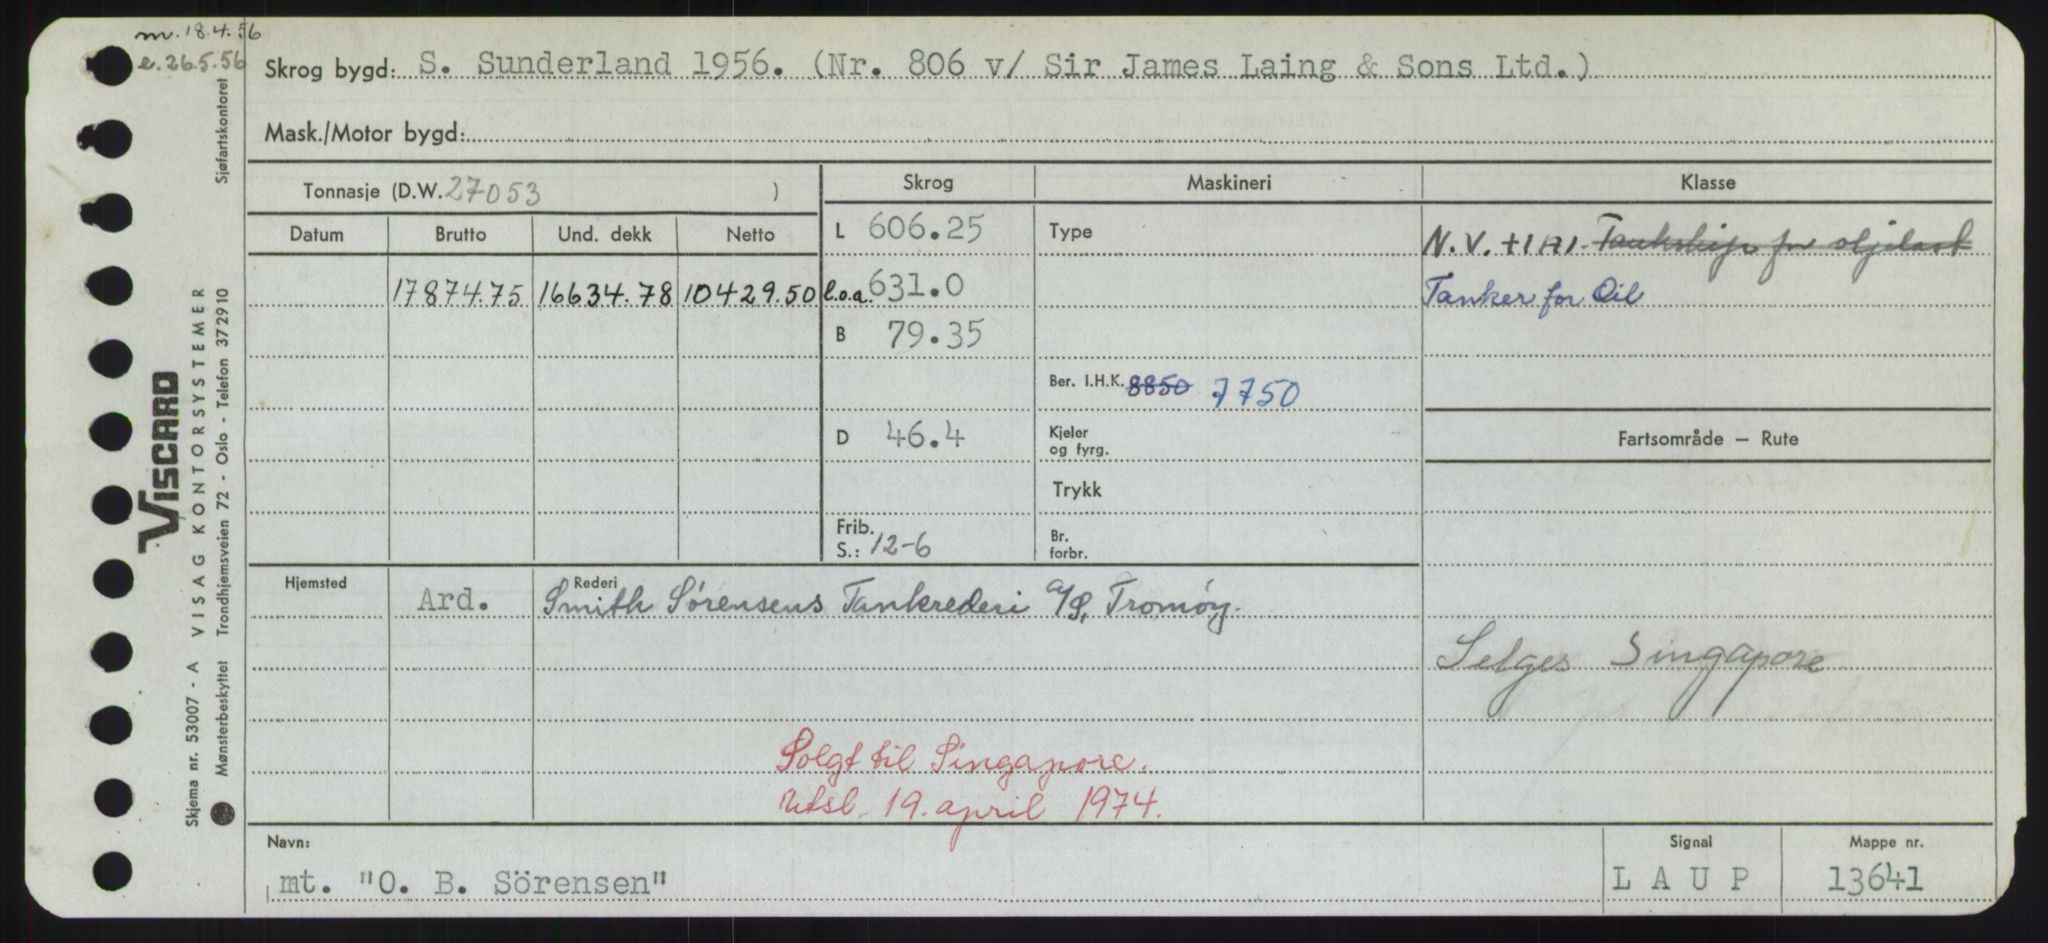 m. 18.4.56
e. 26.5.56
Skrog bygd: S. Sunderland 1956. (Nr. 806 v/ Sir James Laing & Sons Ltd.)
Mask./Motor bygd:
Tonnasje (D.W. 27053 )
Skrog Maskineri Klasse
Datum Brutto Und. dekk Netto
L 606.25 Type N.V. +1A1. Tankskip for oljelast
17874.75 16634.78 10429.50 l.o.a. 631.0 Tanker for Oil
B 79.35
Ber. I.H.K. 8850 7750
D 46.4 Kjeler og fyrg. Fartsområde — Rute
Trykk
Frib. S.: 12-6 Br. forbr.
Hjemsted Ard. Rederi Smith Sörensens Tankrederi A/S, Tromöy.
Selges Singapore
Solgt til Singapore.
Utsl. 19. april 1974.
Navn: Signal Mappe nr.
mt. "O. B. Sörensen" L A U P 13641
Skjema nr. 53007 - A VISAG KONTORSYSTEMER
Mønsterbeskyttet Trondhjemsveien 72 - Oslo - Telefon 37 29 10 Sjøfartskontoret
VISCARD